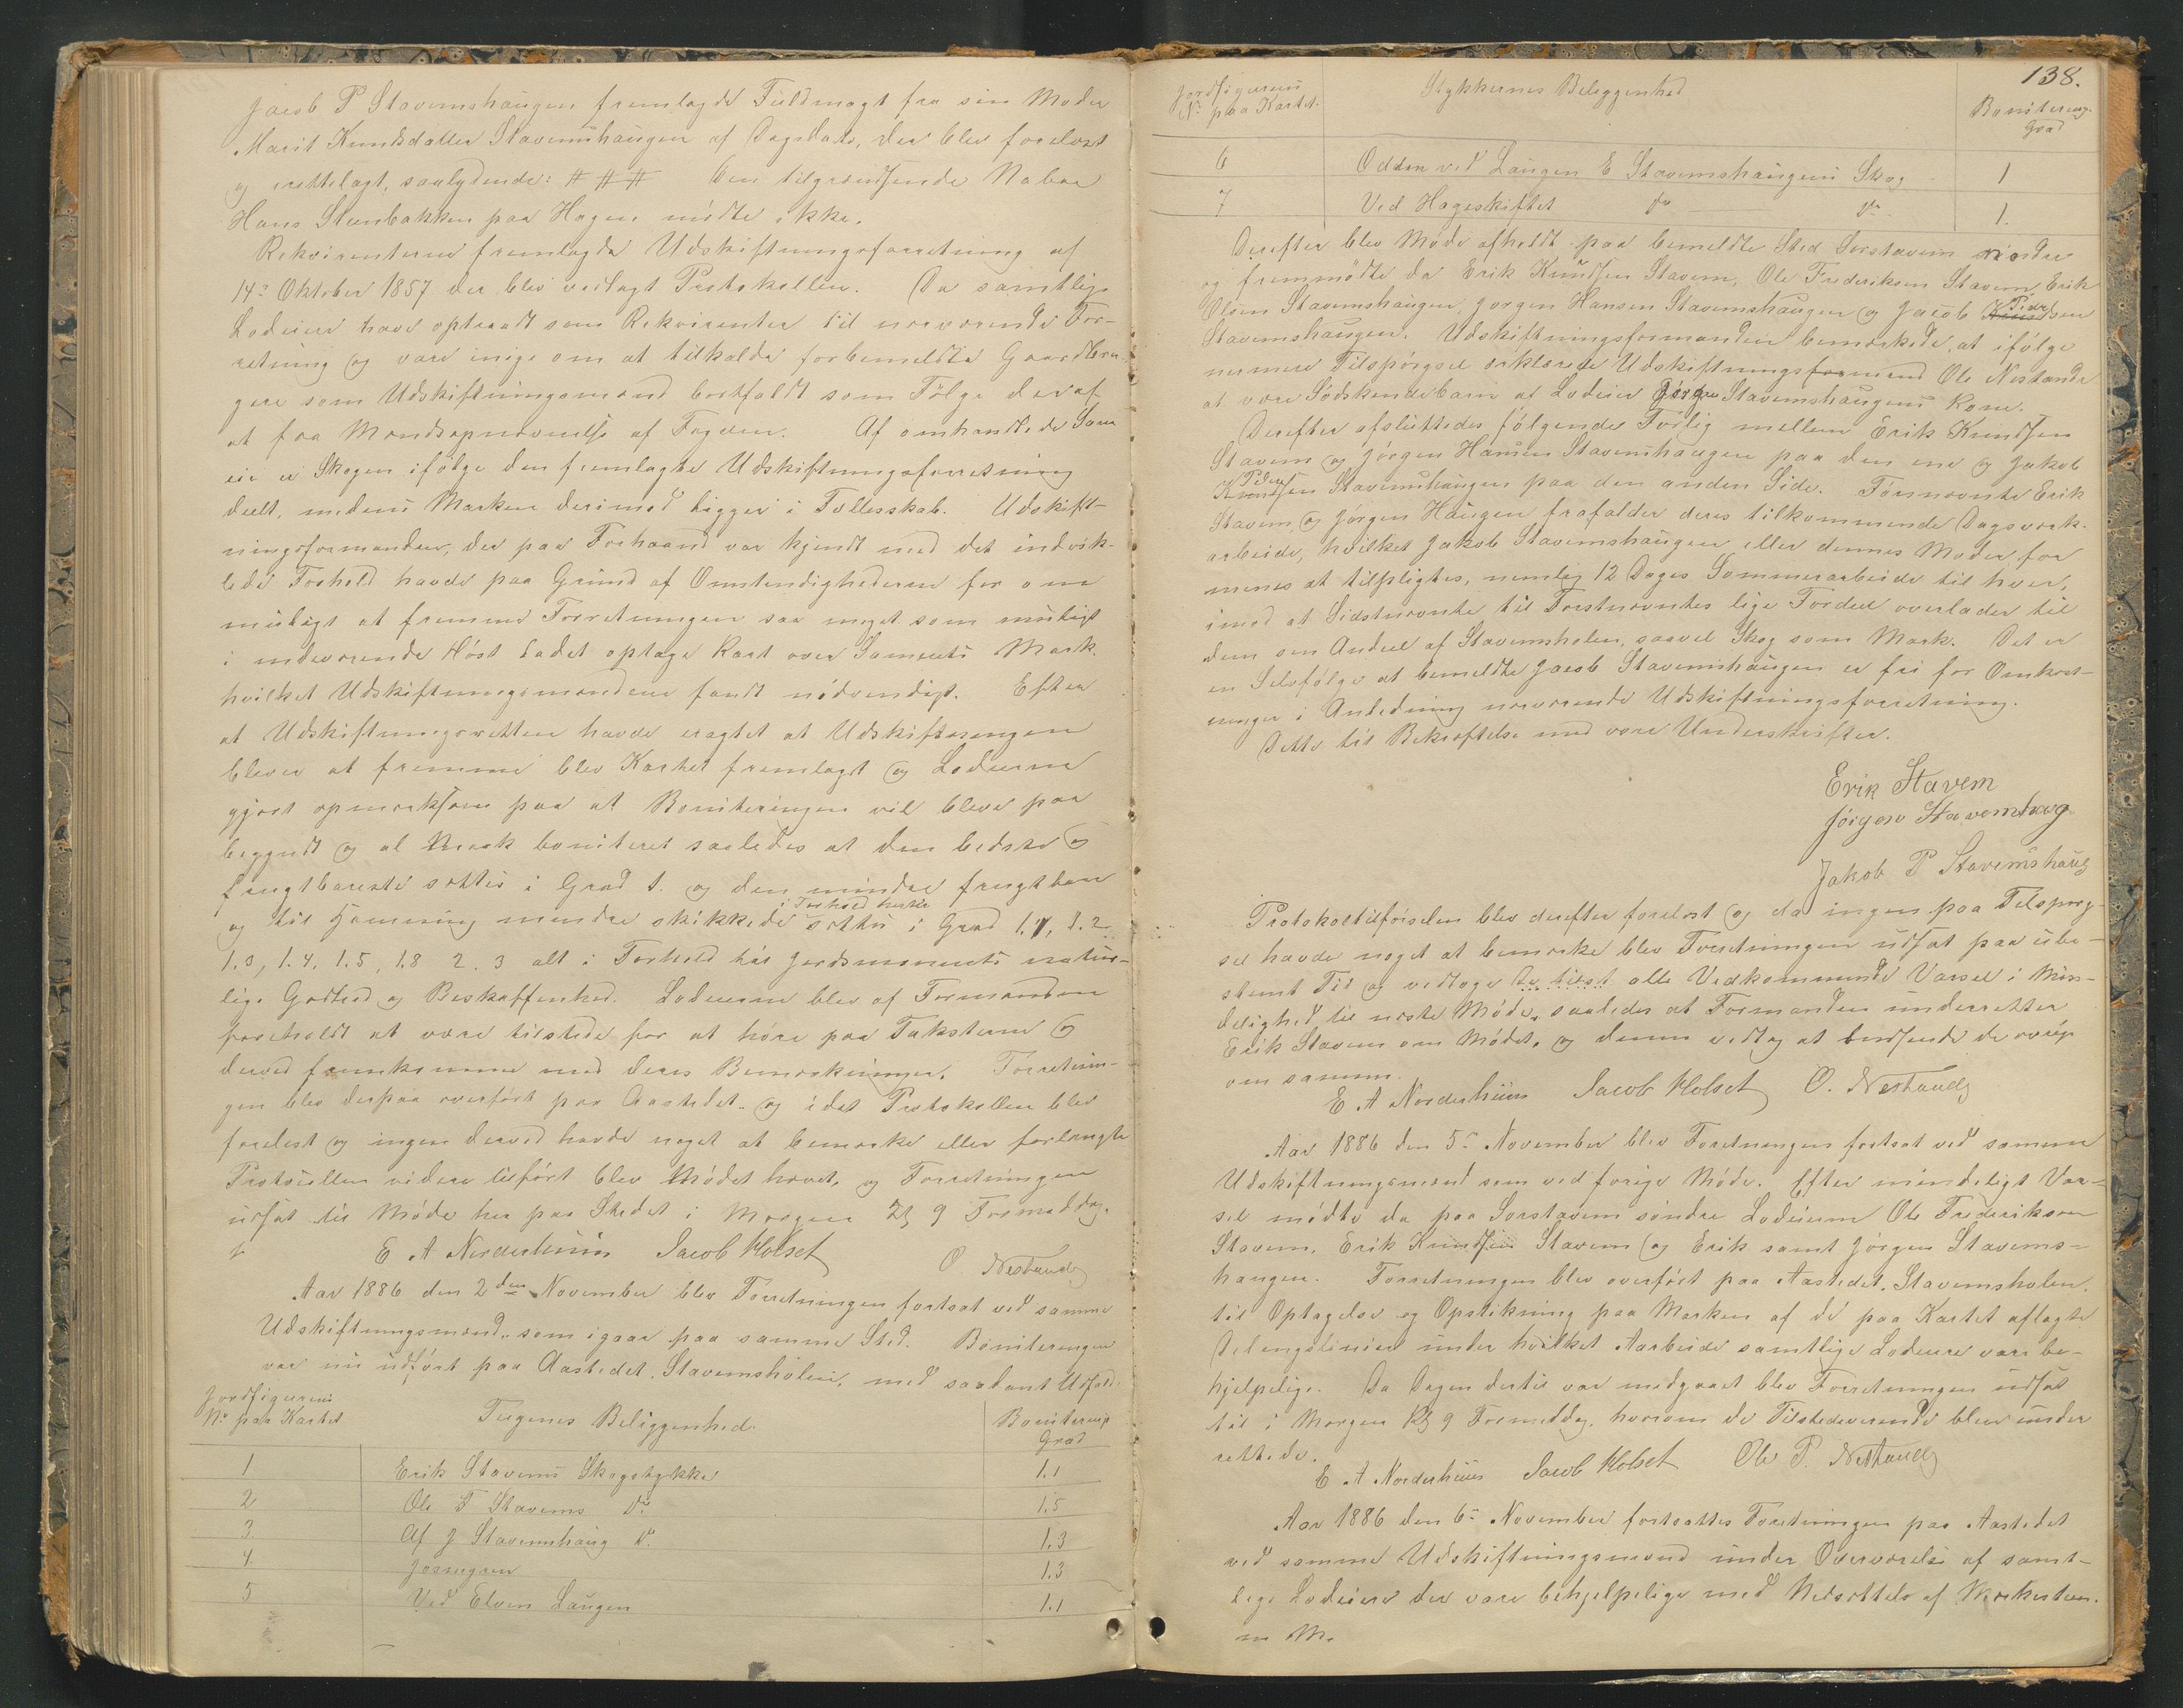 Jacob P Stavemshaugen fremlagde Fuldmagt fra sin Moder
Marit Knudsdatter Stavemshaugen af Dagsdato, der blev forelæst
og irettelagt, saalydende: # # # Den tilgrændsende Nabo
Hans Steenbakken paa Hagen mødte ikke.
Rekvirenterne fremlagde Udskiftningsforretning af
14de Oktober 1857 der blev vedlagt Protokollen. Da samtlige
Lodeiere have optraadt som Rekvirenter til nærværende For-
retning og vare enige om at tilkalde forbemeldte Gaardbru-
gere som Udskiftningsmænd bortfaldt som Følge deraf
at faa Mændsopnævnelse af Fogden. Af omhandlede Sam
eie er Skogen ifølge den fremlagte Udskiftningsforretning
deelt, medens Marken derimod ligger i Fællesskab. Udskift-
ningsformanden, der paa Forhaand var kjendt med det indvik-
lede Forhold havde paa Grund af Omstendighederne for om
muligt at fremme Forretningen saa meget som muligt
i indeværende Høst ladet optage Kart over Sameiets Mark.
hvilket Udskiftningsmændene fandt nødvendigt. Efter
at Udskiftningsretten havde eragtet at Udskiftningen
bliver at fremme blev Kartet fremlagt og Lodeierne
gjort opmærksom paa at Boniteringen vil blive paa
begyndt og al Mark boniteret saaledes at den bedste og
frugtbareste sættes i Grad 1. og den mindre frugtbare
og til Hævning mindre skikkede i Forhold hertil sættes i Grad 1.1, 1.2
1.3, 1.4, 1.5, 1.8 2. 3 alt i Forhold til Jordsmonnets natur-
lige Godhed og Beskaffenhed. Lodeierne blev af Formanden
foreholdt at være tilstede for at høre paa Taksterne og
derved fremkomme med deres Bemærkninger. Forretnin-
gen blev derpaa overført paa Aastedet og idet Protokollen blev
forelest og ingen derved havde noget at bemærke eller forlangte
Protocollen videre tilført blev Mødet hævet, og Forretningen
udsat til Møde her paa Stedet i Morgen Kl 9 Formiddag.
E A Norderhuus Jacob Holset O. Nestande
Aar 1886 den 2den November blev Forretningen fortsat ved samme
Udskiftningsmænd som igaar paa samme Sted. Boniteringen
var nu udført paa Aastedet, Stavemsholen, med saadant Udfald.
Jordfigurens No paa Kartet Teigenes Beliggenhed. Boniterings Grad
1 Erik Stavems Skogstykke 1.1
2 Ole F Stavems do 1.5
3. Af J Stavemshaug do. 1.3
4. 1.3
5 Ved Elven Laugen 1.1
138.
Jordfigurens No paa Kartet. Stykkernes Beliggenhed Boniterings Grad
6 Odden ved Laugen E Stavemshaugens Skog 1
7 Ved Hageskiftet do do 1.
Derefter blev Møde afholdt paa bemeldte Sted Sørstavem søndre
og fremmødte da Erik Knudsen Stavem, Ole Frederiksen Stavem, Erik
Olsen Stavemshaugen, Jørgen Hansen Stavemshaugen og Jacob Peder sen
Stavemshaugen. Udskiftningsformanden bemærkede, at ifølge
nermere Tilspørgsel erklærede Udskiftningsformand Ole Nestande
at være Sødskendebarn af Lodeier Jørgen Stavemshaugens Kone.
Derefter afsluttedes følgende Forlig mellem Erik Knudsen
Stavem og Jørgen Hansen Stavemshaugen paa den ene og Jakob
Pedersen Stavemshaugen paa den anden Side. Førnævnte Erik
Stavem og Jørgen Haugen frafalder deres tilkommende Dagsverk-
arbeide, hvilket Jakob Stavemshaugen eller dennes Moder for
menes at tilpligtes, nemlig 12 Dages Sommerarbeide til hver,
imod at Sidstnævnte til Førstnævntes lige Fordeel overlader til
dem sin Andeel af Stavemsholen, saavel Skog som Mark. Det er
en Selvfølge at bemeldte Jacob Stavemshaugen er fri for Omkost-
ninger i Anledning nærværende Udskiftningsforretning.
Dette til Bekræftelse med vore Underskrifter.
Erik Stavem
Jörgen Stavemshaug
Jakob P Stavemshaug
Protokoltilførselen blev derefter forelæst og da ingen paa Tilspørg-
sel havde noget at bemærke blev Forretningen udsat paa ube-
stemt Tid og vedtoge alle Vedkommende Varsel i Min-
delighed til næste Møde, saaledes at Formanden underretter
Erik Stavem om Mødet, og denne vedtog at budsende de øvrige
om samme.
E. A Norderhuus Jacob Holset O. Nestande
Aar 1886 den 5te November blev Forretningen fortsat ved samme
Udskiftningsmænd som ved forrige Møde. Efter mindeligt Var-
sel mødte da paa Sørstavem søndre Lodeierne Ole Frederiksen
Stavem, Erik Knudsen Stavem og Erik samt Jørgen Stavems-
haugen. Forretningen blev overført paa Aastedet, Stavemsholen.
til Optagelse og Opstikning paa Marken af de paa Kartet aflagte
Delingslinier under hvilket Aarbeide samtlige Lodeiere vare be-
hjelpelige. Da Dagen dertil var medgaaet blev Forretningen udsat
til i Morgen Kl 9 Formiddag, hvorom de Tilstedeværende blev under
rettede.
E. A Norderhuus Jacob Holset Ole P. Nestande
Aar 1886 den 6te November fortsattes Forretningen paa Aastedet
ved samme Udskiftningsmænd under Overværelse af samt-
lige Lodeiere der vare behjelpelige med Nedsættelse af Merkesteen.
m M.